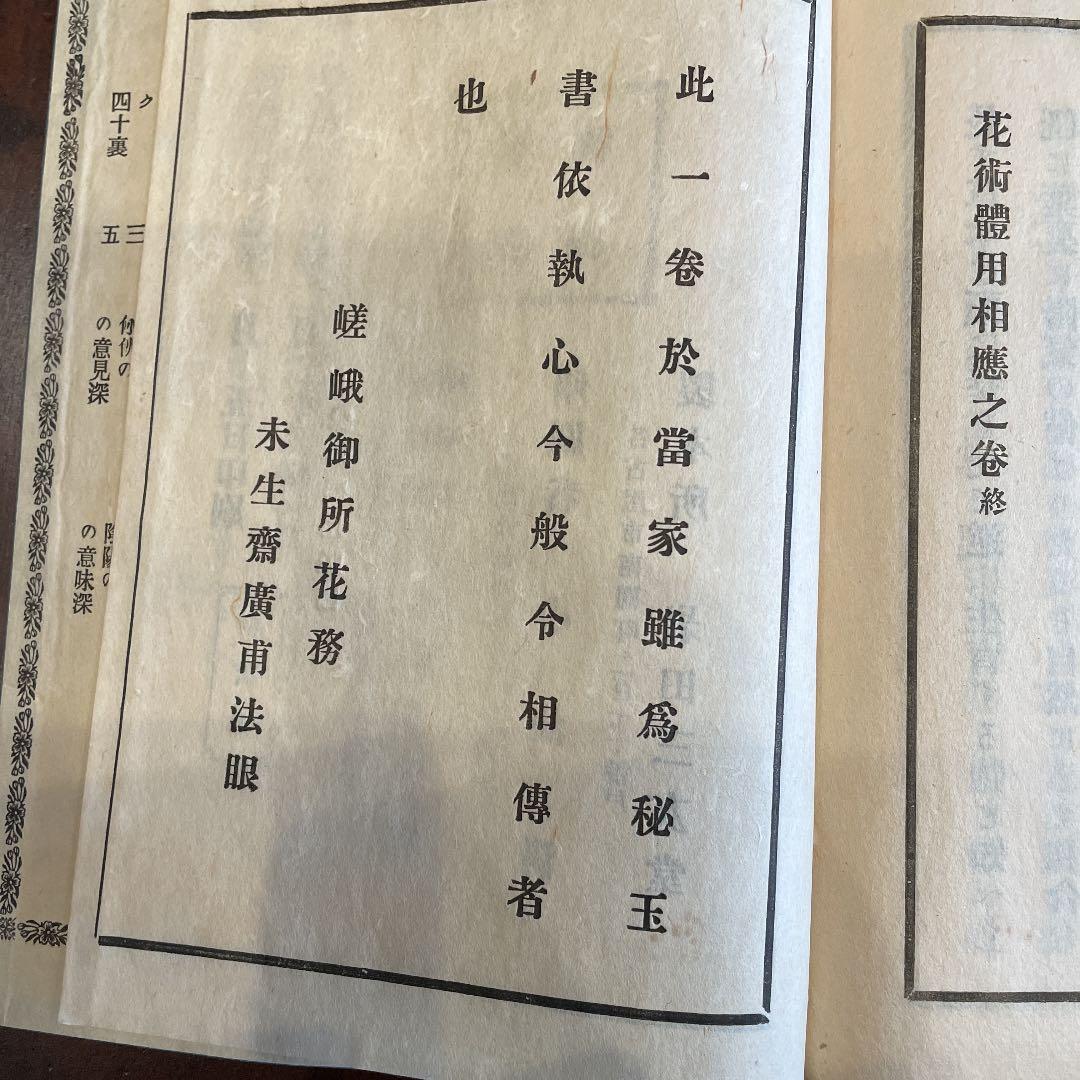 花術體用相應之卷終
此一卷於當家雖爲秘玉
書依執心今般令相傳者
也
嵯峨御所花務
未生齋廣甫法眼
ク
四十裏
三
五
の意見深
の意味深